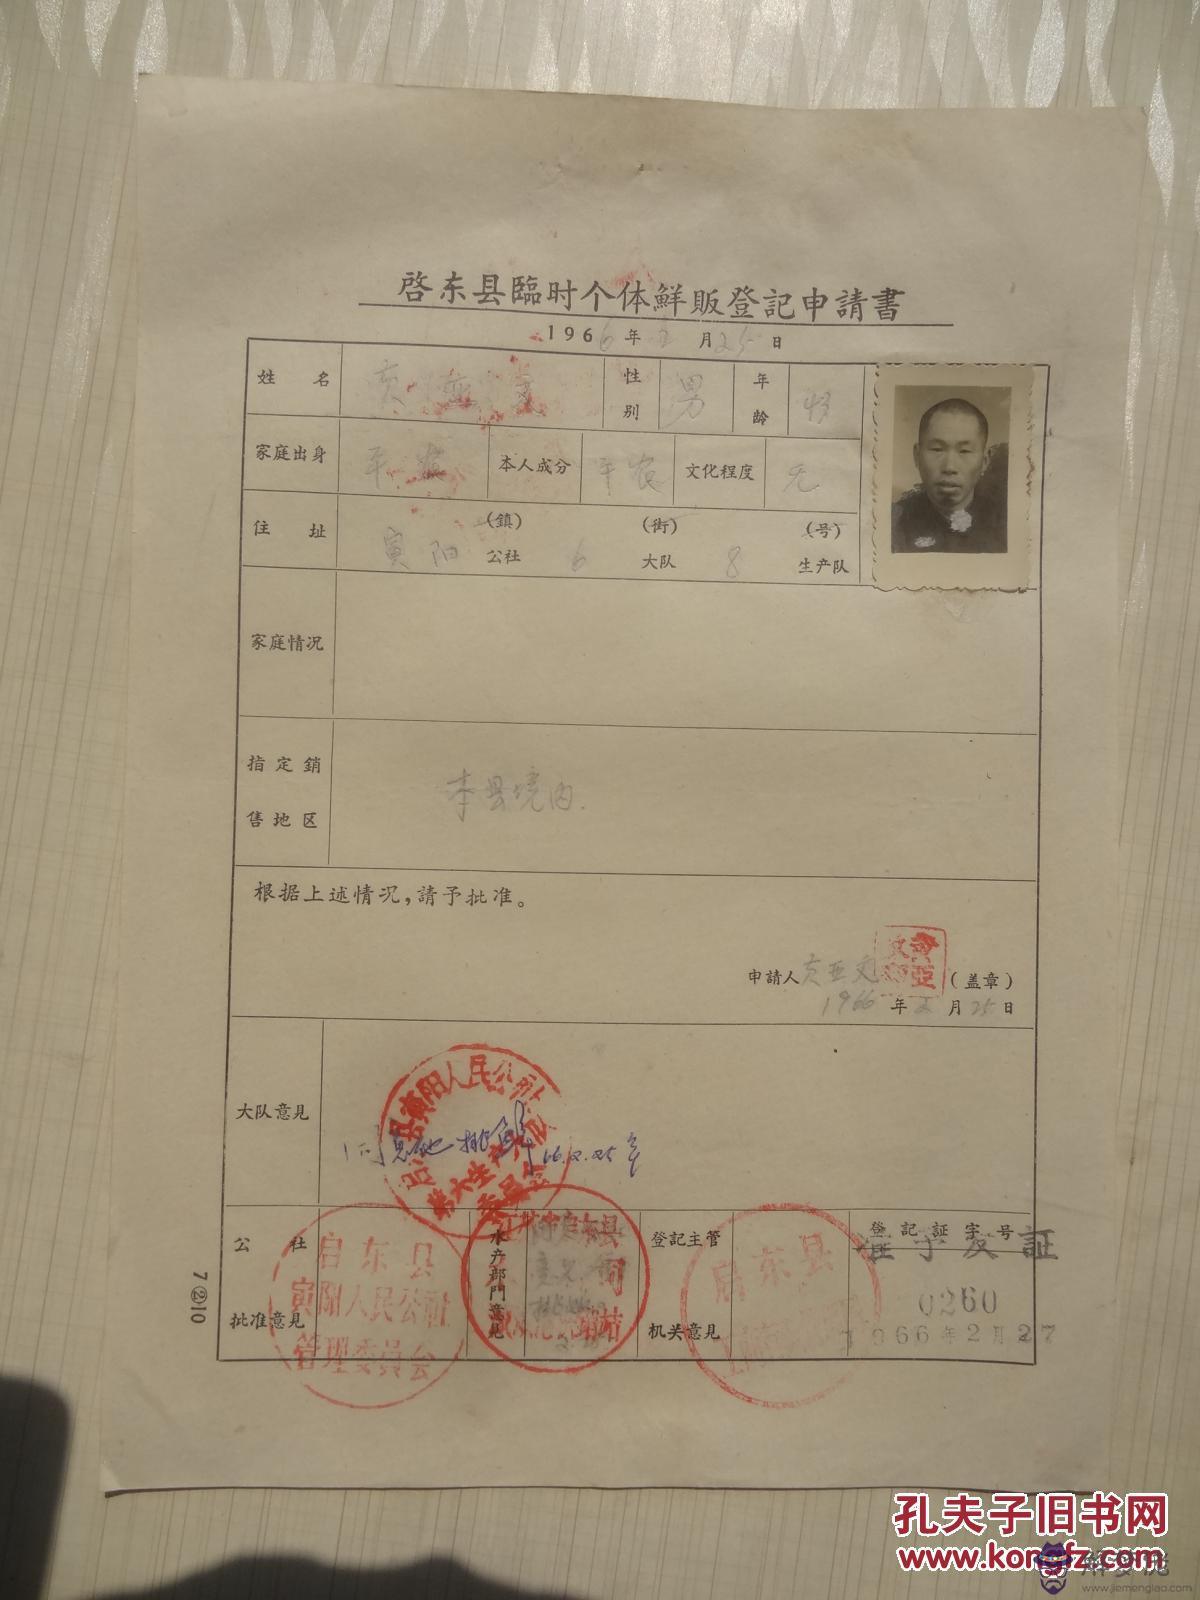 啓东县臨时个体鮮販登記申請書
1966年2月25日
姓名 黄亚文 性别 男 年龄
家庭出身 平农 本人成分 平农 文化程度 无
住址 (鎮) (街) (号)
寅阳 公社 6 大队 8 生产队
家庭情况
指定銷售地区 本县境内.
根据上述情况,請予批准。
申請人 黄亚文 (盖章)
1966年2月25日
大队意見 同意他 66.2.25
县寅阳人民公社
第六生产
公社批准意見
启东县
寅阳人民公社
管理委員会
水产部門意見
启东县
登記主管机关意見
启东县
登記証字号
准予发証
0260
1966年2月27
7②10
孔夫子旧书网
www.kongfz.com
解梦佬
www.jiemenglao.com